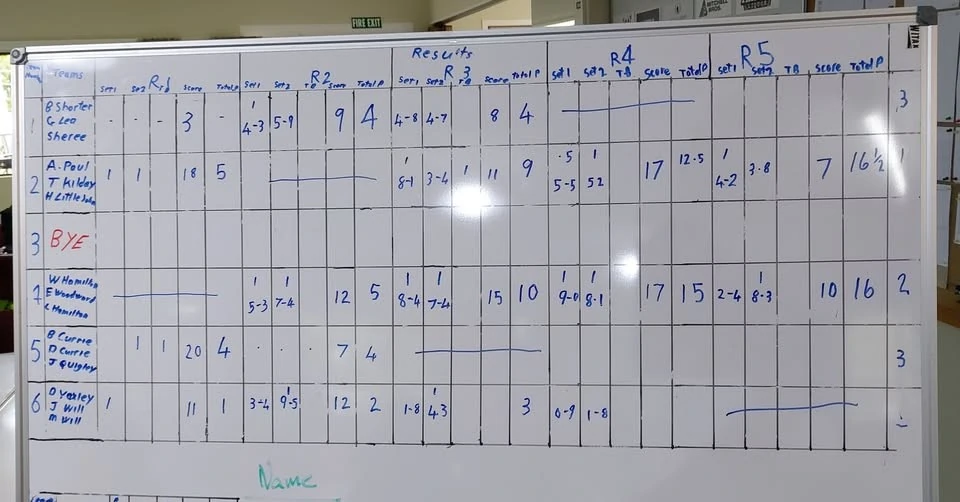 FIRE EXIT
MITCHELL BROS.
Results
Teams R1 R2 R 3 R4 R5
Set1 Set2 Score Totalp Set1 Set2 TB Score Total P Set1 Set2 TB Score Total P Set1 Set2 TB Score Total P Set1 Set2 TB Score Total P
1 B Shorter G Lea Sheree - - - 3 - 1 4-3 5-9 9 4 4-8 4-7 8 4 3
2 A. Paul T Kilday H LittleJohn 1 1 18 5 1 8-1 3-4 1 11 9 .5 5-5 1 52 17 12.5 1 4-2 3-8 7 16 1/2 1
3 BYE
W Hamilton E Woodward L Hamilton 1 5-3 1 7-4 12 5 1 8-4 1 7-4 15 10 1 9-0 1 8-1 17 15 2-4 1 8-3 10 16 2
5 B Currie D Currie J Quigley 1 1 20 4 . . . 7 4 3
6 D Yaxley J Will M Will 1 11 1 3-4 1 9-5 12 2 1-8 1 43 3 0-9 1-8
Name